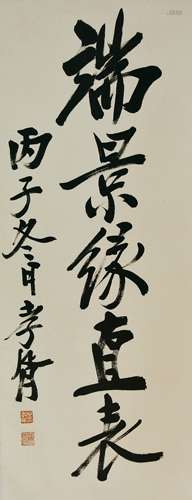 端景缘直表
丙子冬日孝胥